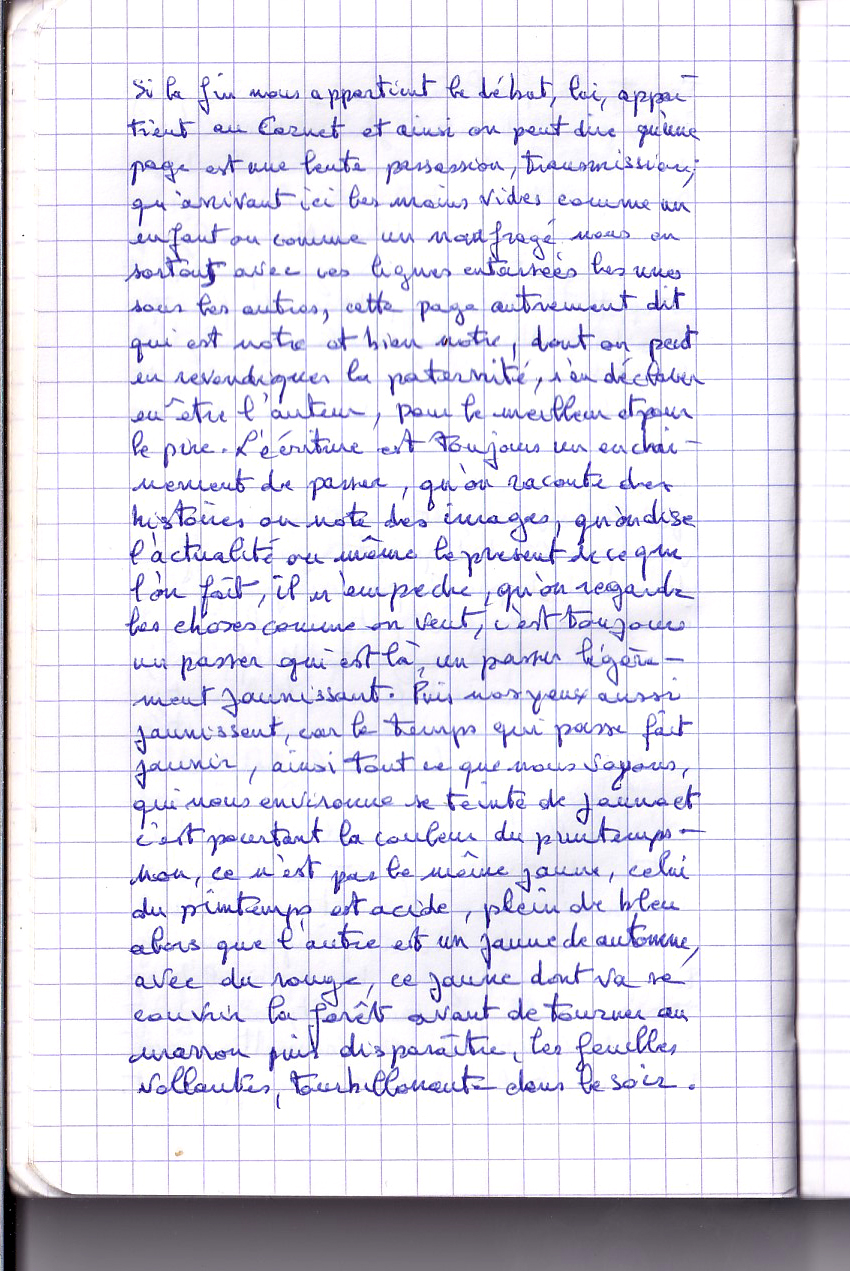 Si la fin nous appartient le début, lui, appar-
tient au Carnet et ainsi on peut dire qu'une
page est une lente possession, transmission;
qu'arrivant ici les mains vides comme un
enfant ou comme un naufragé nous en
sortons avec ces lignes entassées les unes
sous les autres, cette page autrement dit
qui est notre et bien notre, dont on peut
en revendiquer la paternité, s'en déclarer
en être l'auteur, pour le meilleur et pour
le pire. L'écriture est toujours un enchai-
nement de passer, qu'on raconte des
histoires ou note des images, qu'on dise
l'actualité ou même le présent de ce que
l'on fait, il n'empeche, qu'on regarde
les choses comme on veut, c'est toujours
un passer qui est là, un passer légère-
ment jaunissant. Puis nos yeux aussi
jaunissent, car le temps qui passe fait
jaunir, ainsi tout ce que nous voyons,
qui nous environne se teinte de jaune et
c'est pourtant la couleur du printemps-
non, ce n'est pas le même jaune, celui
du printemps est acide, plein de bleu
alors que l'autre est un jaune de automne,
avec du rouge, ce jaune dont va se
couvrir la forêt avant de tourner au
marron puis disparaître, les feuilles
vollantes, tourbillonante dans le soir.